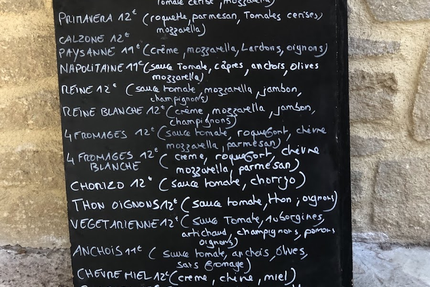 Tomate cerise, mozzarella)
PRIMAVERA 12€ (roquette, parmesan, Tomates cerises,
mozzarella)
CALZONE 12€
PAYSANNE 11€ (crème, mozzarella, Lardons, oignons)
NAPOLITAINE 11€ (sauce Tomate, câpres, anchois, olives
mozzarella)
REINE 12€ (sauce tomate, mozzarella, jambon,
champignons)
REINE BLANCHE 12€ (crème, mozzarella, jambon,
champignons)
4 FROMAGES 12€ (sauce tomate, roquefort, chèvre
mozzarella, parmesan)
4 FROMAGES 12€ (creme, roquefort, chèvre
BLANCHE mozzarella, parmesan)
CHORIZO 12€ (sauce tomate, chorizo)
THON OIGNONS 12€ (sauce tomate, thon, oignons)
VEGETARIENNE 12€ (sauce Tomate, aubergines,
artichaud, champignons, poivrons
oignons)
ANCHOIS 11€ (sauce tomate, anchois, olives,
sans fromage)
CHEVRE MIEL 12€ (creme, chèvre, miel)